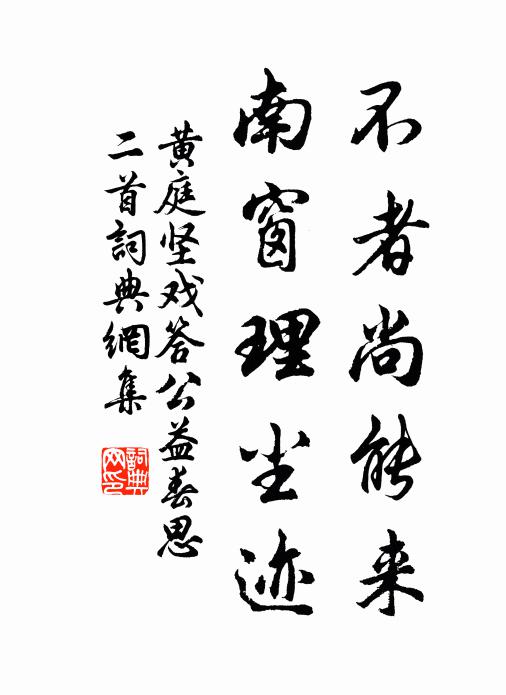 不者尚能来
南窗理尘迹
黄庭坚戏答公益春思
二首詞典網集
詞典网印